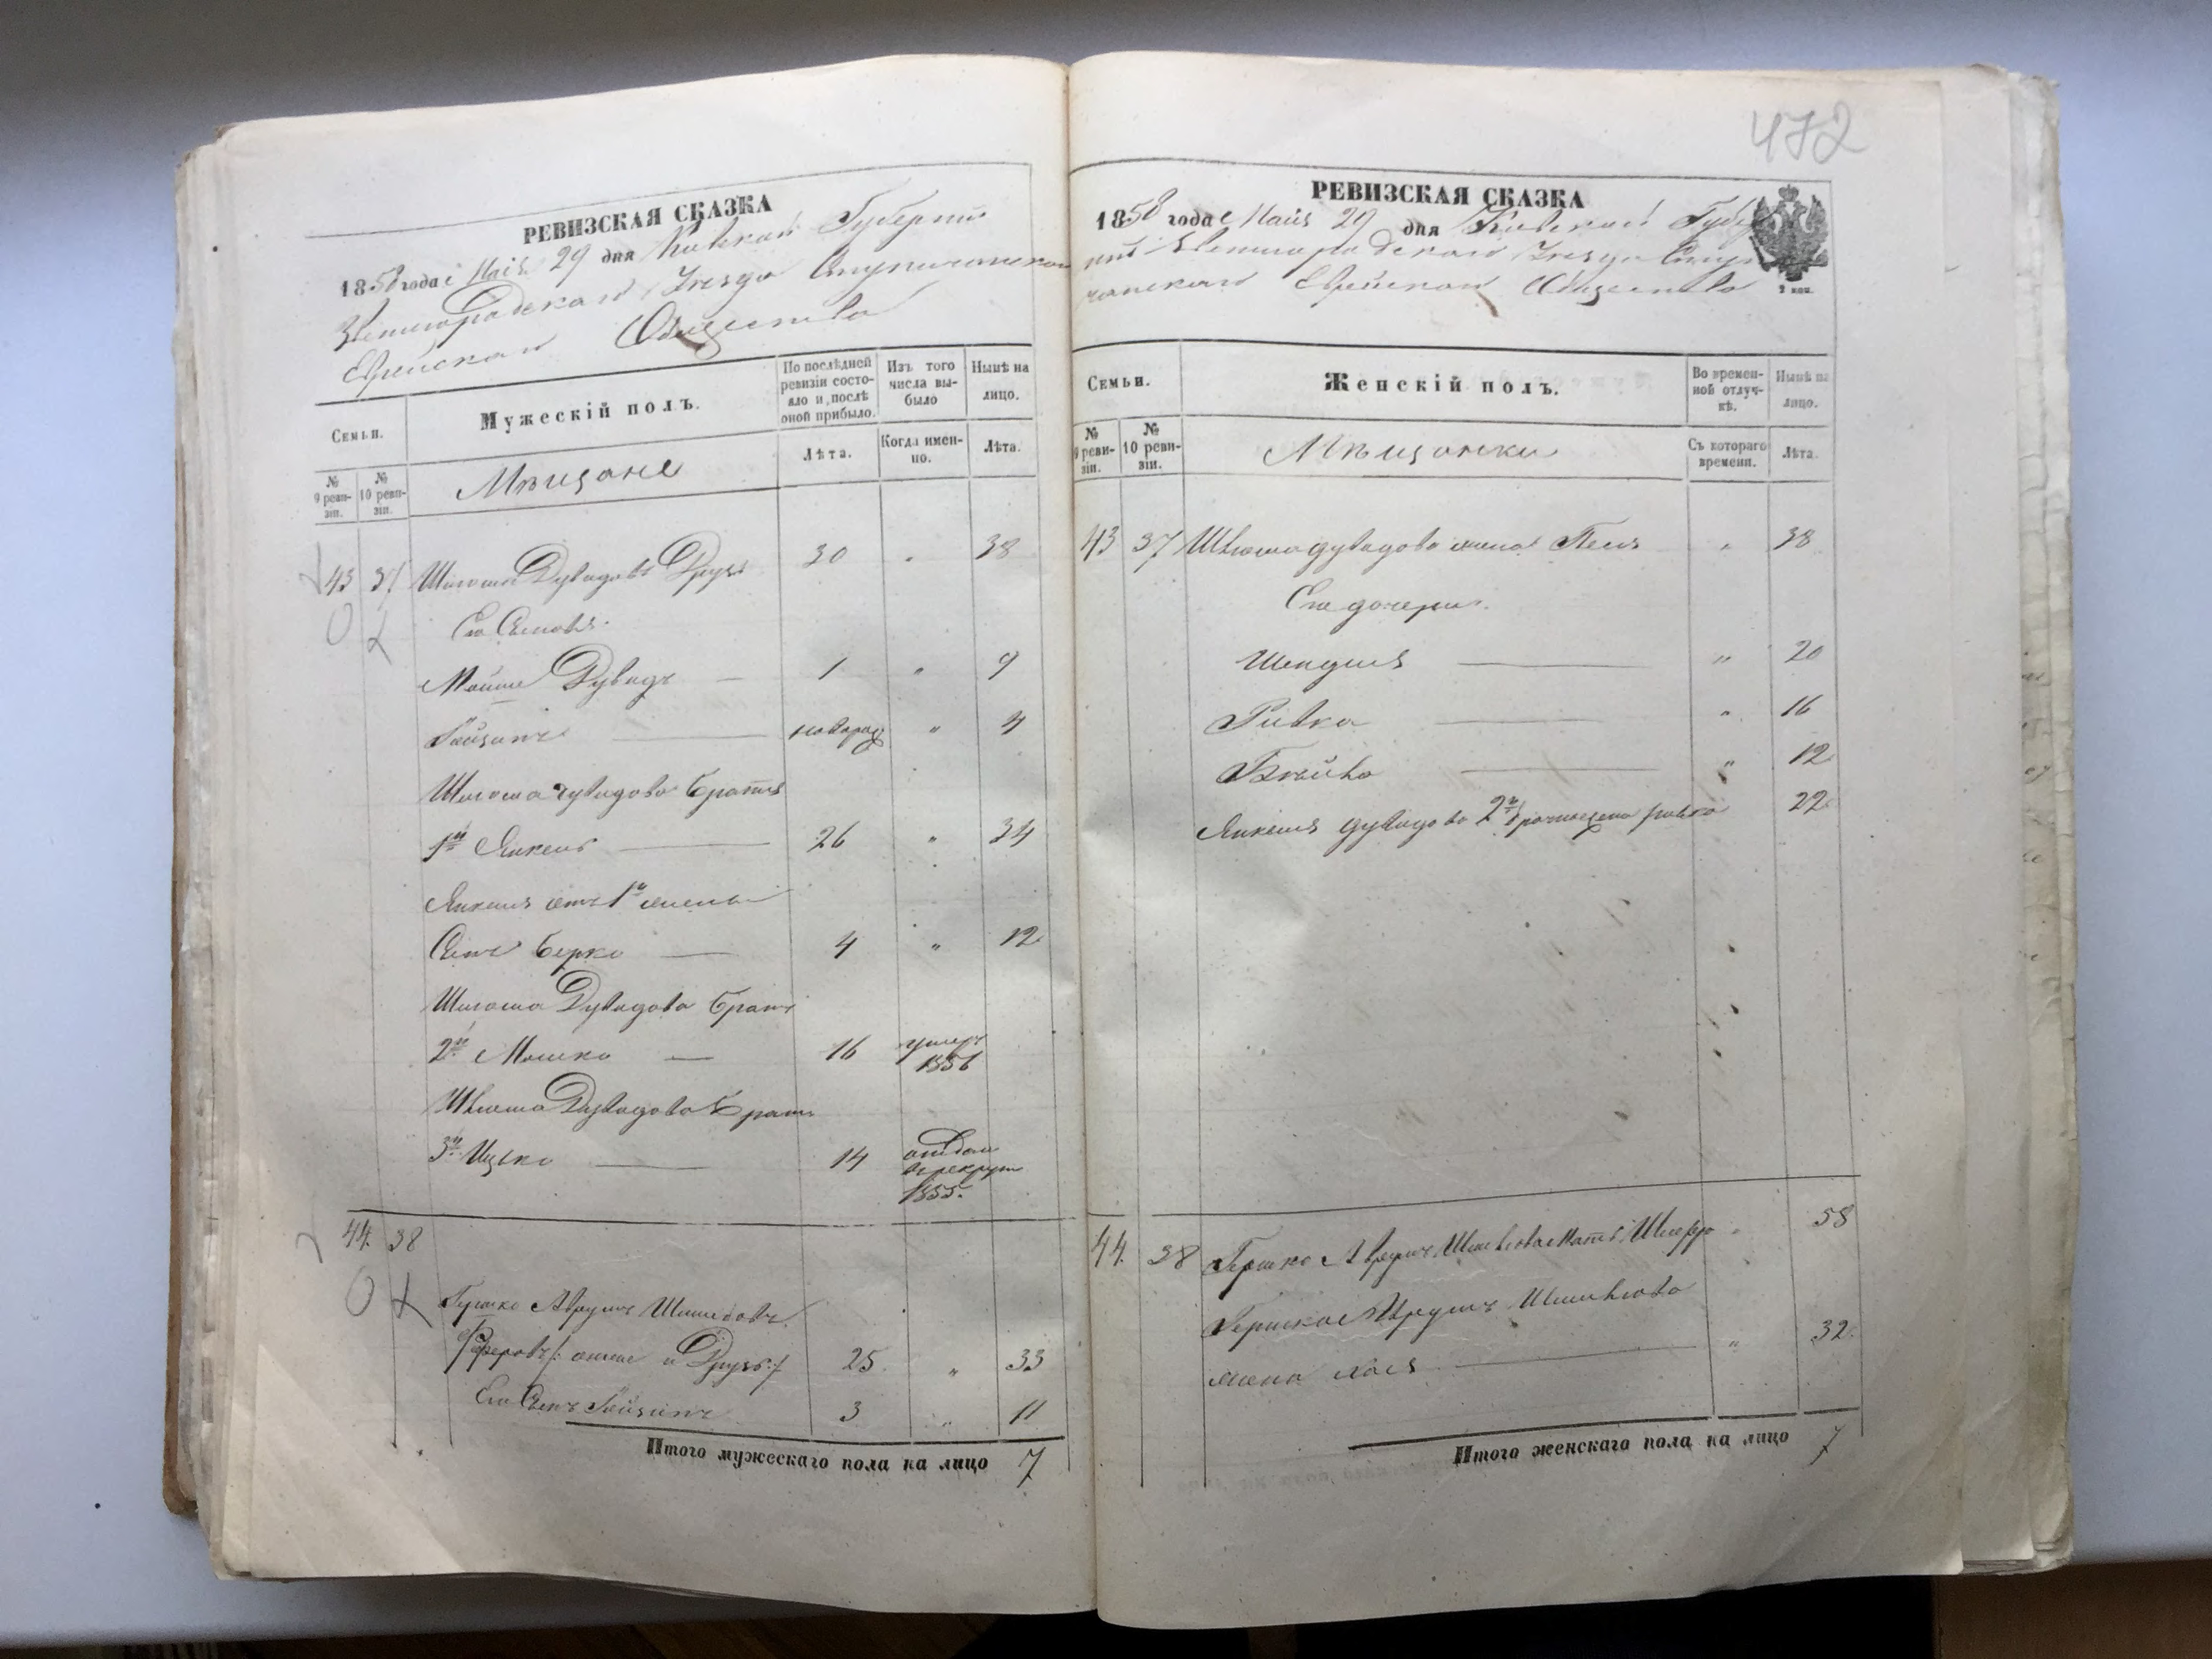 РЕВИЗСКАЯ СКАЗКА
1858 года Мая 29 дня Киевской Губернии
Звенигородскаго Уезда
Еврейскаго Общества
Семьи.
Мужескій полъ.
По послѣдней ревизіи состояло и послѣ оной прибыло.
Изъ того числа выбыло
Нынѣ на лицо.
№ 9 ревизіи.
№ 10 ревизіи.
Мѣщане
Лѣта.
Когда именно.
Лѣта.
43 37 Дувидовъ Друзь 30 " 38
Его Сыновья
Мойше Дувидъ — 1 " 9
Лейзинъ — новорож " 4
Дувидова братья
1й Янкель — 26 " 34
Янкеля отъ 1й жены
Сынъ Берко — 4 " 12
Дувидова братъ
2й Мошко — 16 умеръ 1856
Дувидова братъ
3й Ицько — 14 отданъ въ рекруты 1855.
44. 38
Гершко Аврумъ
онже и Друзь 25 " 33
Его Сынъ Лейзинъ 3 " 11
Итого мужескаго пола на лицо 7
472
РЕВИЗСКАЯ СКАЗКА
1858 года Мая 29 дня Киевской Губернии
Звенигородскаго Уезда
Еврейскаго Общества
2 коп.
Семьи.
Женскій полъ.
Во временной отлучкѣ.
Нынѣ на лицо.
№ 9 ревизіи.
№ 10 ревизіи.
Мѣщанки
Съ котораго времени.
Лѣта.
43 37 Дувидова жена Песя " 38
Его дочери
Шендля — " 20
Ривка — " 16
Бѣйла — " 12
Янкеля Дувидова 2й жена Ривка 22
44. 38 Гершко Аврумъ мать " 58
Гершко Аврумъ
жена Хая — " 32
Итого женскаго пола на лицо 7